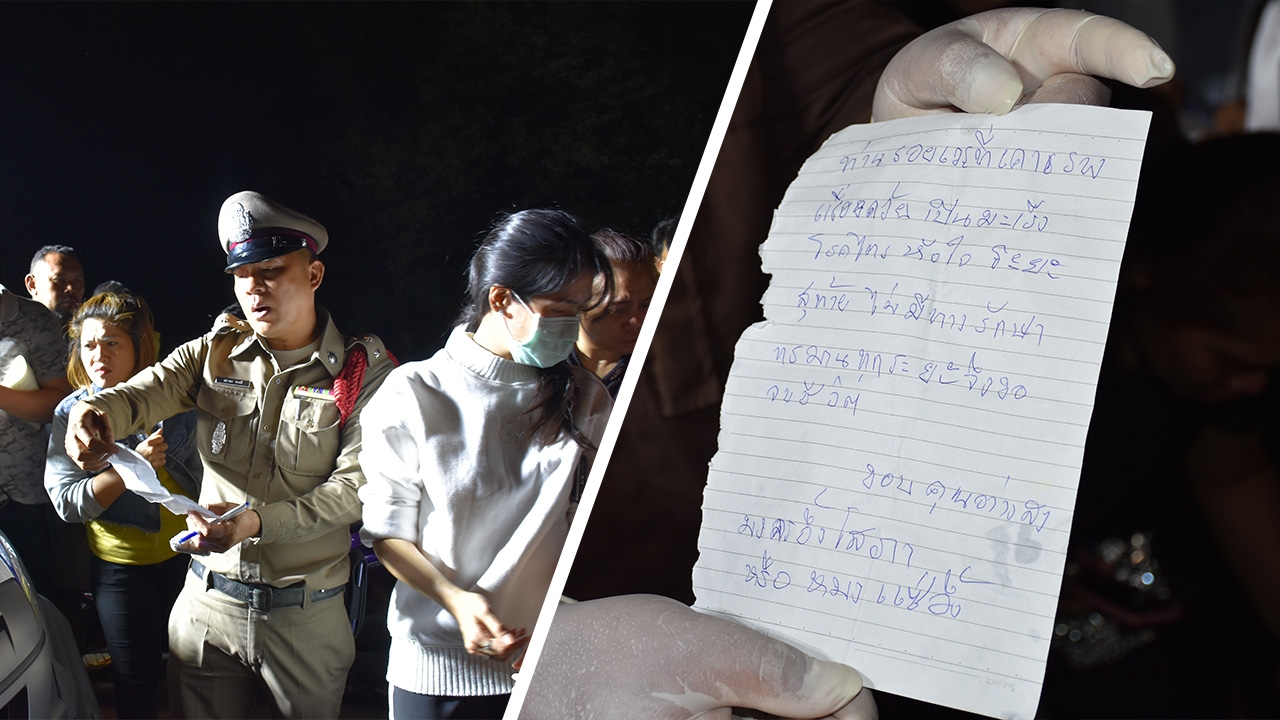 ท่านร้อยเวรที่เคารพ
เนื่องด้วย เป็นมะเร็ง
โรคไต หัวใจ ระยะ
สุดท้าย ไม่มีทางรักษา
ทรมานทุกระยะจึงขอ
จบชีวิต
ขอบคุณอย่างสูง
โสภา
หรือ หมวง แซ่อึ้ง